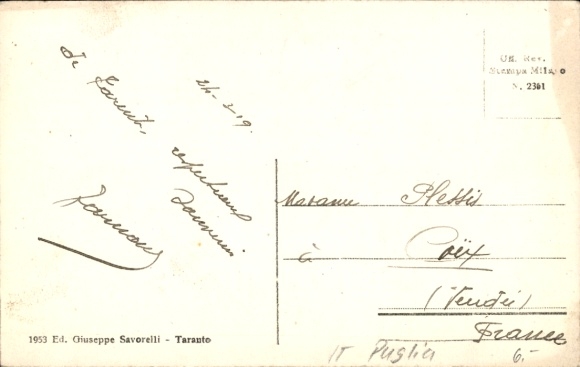 24-3-19
De Tarente,
respectueux
souvenir
Uff. Rev.
Stampa Milano
N. 2361
Madame Plessis
à
Coëx
(Vendée)
France
1953 Ed. Giuseppe Savorelli - Taranto
IT Puglia 6.-